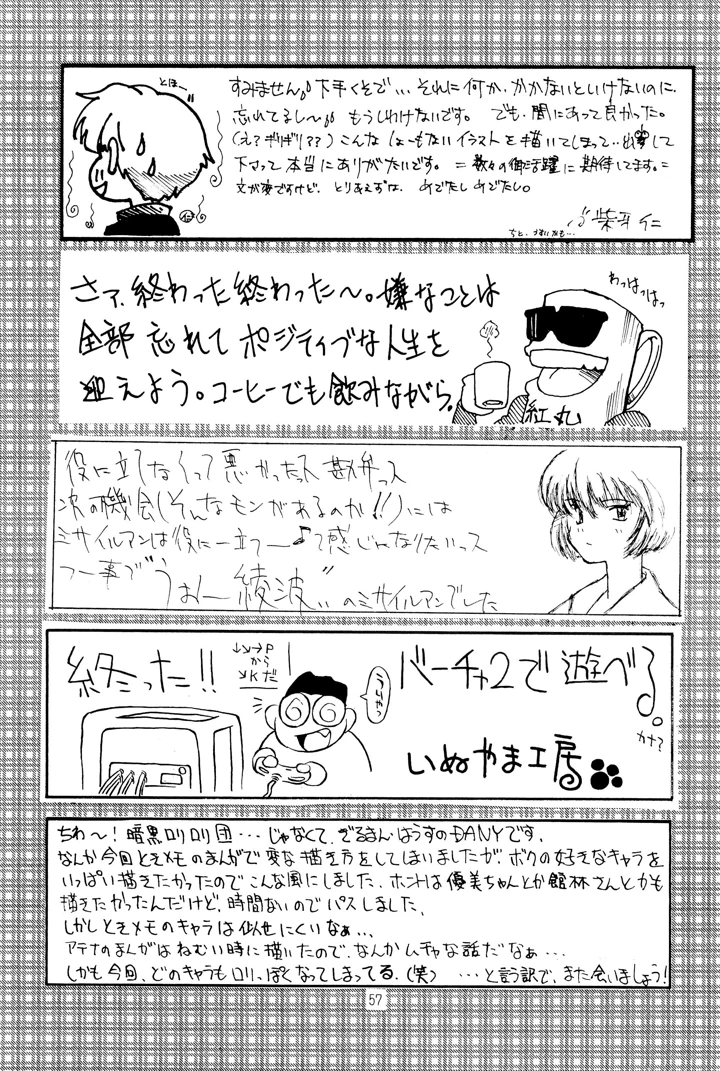 とほー
すみません 下手くそで… それに何か、かかないといけないのに、
忘れてるし〜 もうしわけないです。 でも、間にあって良かった。
(え?ギリギリ??) こんな しょーもないイラストを描いてしまって…
下さって本当にありがたいです。 =数々の御活躍に期待してます。=
文が変ですけど、とりあえずは、めでたしめでたし。
柴牙 仁
さァ、終わった終わった〜。嫌なことは
全部忘れてポジティブな人生を
迎えよう。コーヒーでも飲みながら。
わっはっはっ
紅丸
役に立てなくって悪かったっス 勘弁っス
次の機会(そんなモンがあるのか!!)には
ミサイルマンは役に立つ—♪て感じになりたいっス
つー事で“うおー綾波”のミサイルマンでした
終った!!
↓↘→P
から
Kだ
うりゃっ
バーチャ2で遊べる。
カナ?
いぬやま工房
ちわ〜!暗黒ロリロリ団…じゃなくて、ぞるまんはうすのDANYです。
なんか今回ときメモのまんがで変な描き方をしてしまいましたが、ボクの好きなキャラを
いっぱい描きたかったのでこんな風にしました。ホントは優美ちゃんとか館林さんとかも
描きたかったんだけど、時間ないのでパスしました。
しかしときメモのキャラは似せにくいなぁ…
アテナのまんがはねむい時に描いたので、なんかムチャな話だなぁ…
しかも今回、どのキャラもロリっぽくなってしまってる。(笑) …と言う訳で、また会いましょう!
57